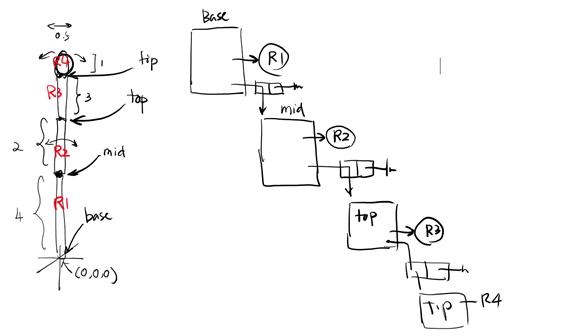 0.5
R4
1
tip
R3
3
top
2
R2
mid
R1
4
base
(0,0,0)
Base
R1
mid
R2
top
R3
Tip
R4